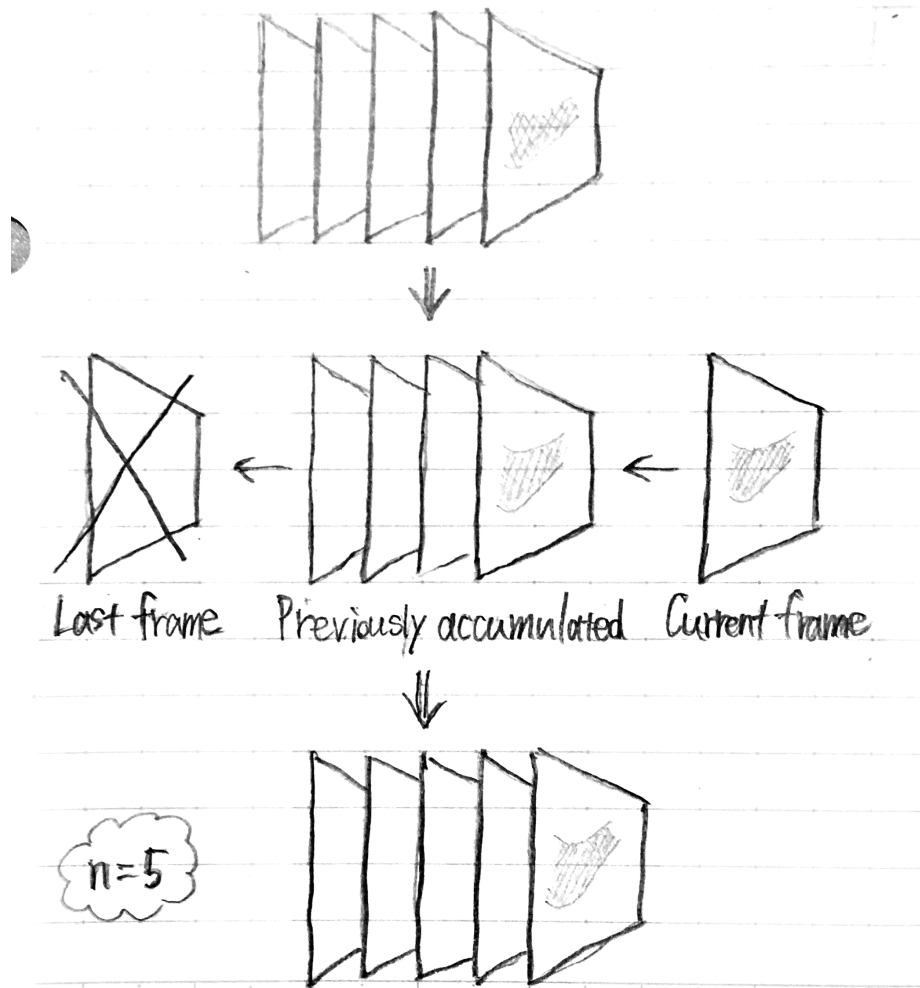 Last frame
Previously accumulated
Current frame
n=5